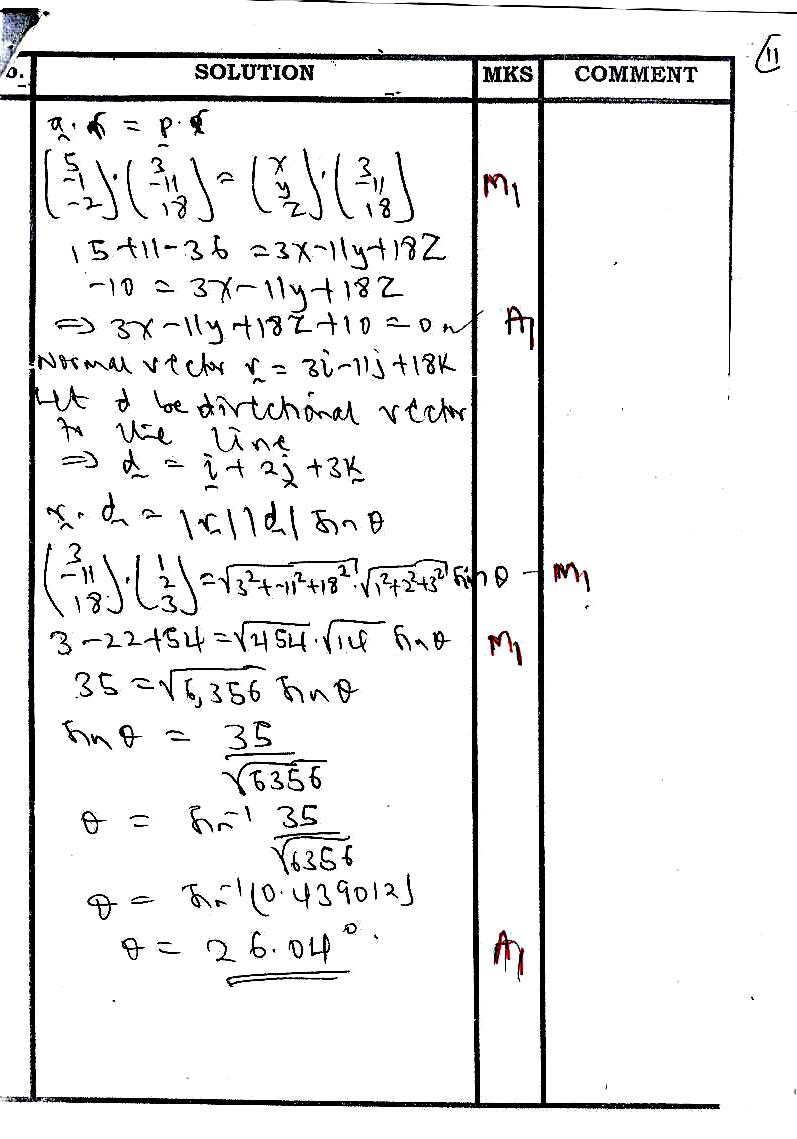 11
o. SOLUTION MKS COMMENT
a · r = p · r
(5 -1 -2) · (3 -11 18) = (x y z) · (3 -11 18) M1
15+11-36 = 3x-11y+18z
-10 = 3x-11y+18z
⇒ 3x-11y+18z+10 = 0 A1
Normal vector r = 3i-11j+18k
Let d be directional vector
to the line
⇒ d = i + 2j + 3k
r · d = |r||d| sin θ
(3 -11 18) · (1 2 3) = √3²+-11²+18² · √1²+2²+3² sin θ - M1
3-22+54 = √454 · √14 sin θ M1
35 = √6,356 sin θ
sin θ = 35/√6356
θ = sin⁻¹ 35/√6356
θ = sin⁻¹(0.439012)
θ = 26.04°. A1